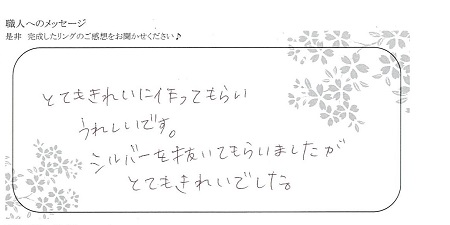 職人へのメッセージ
是非 完成したリングのご感想をお聞かせください♪
とてもきれいに作ってもらい
うれしいです。
シルバーを抜いてもらいましたが
とてもきれいでした。